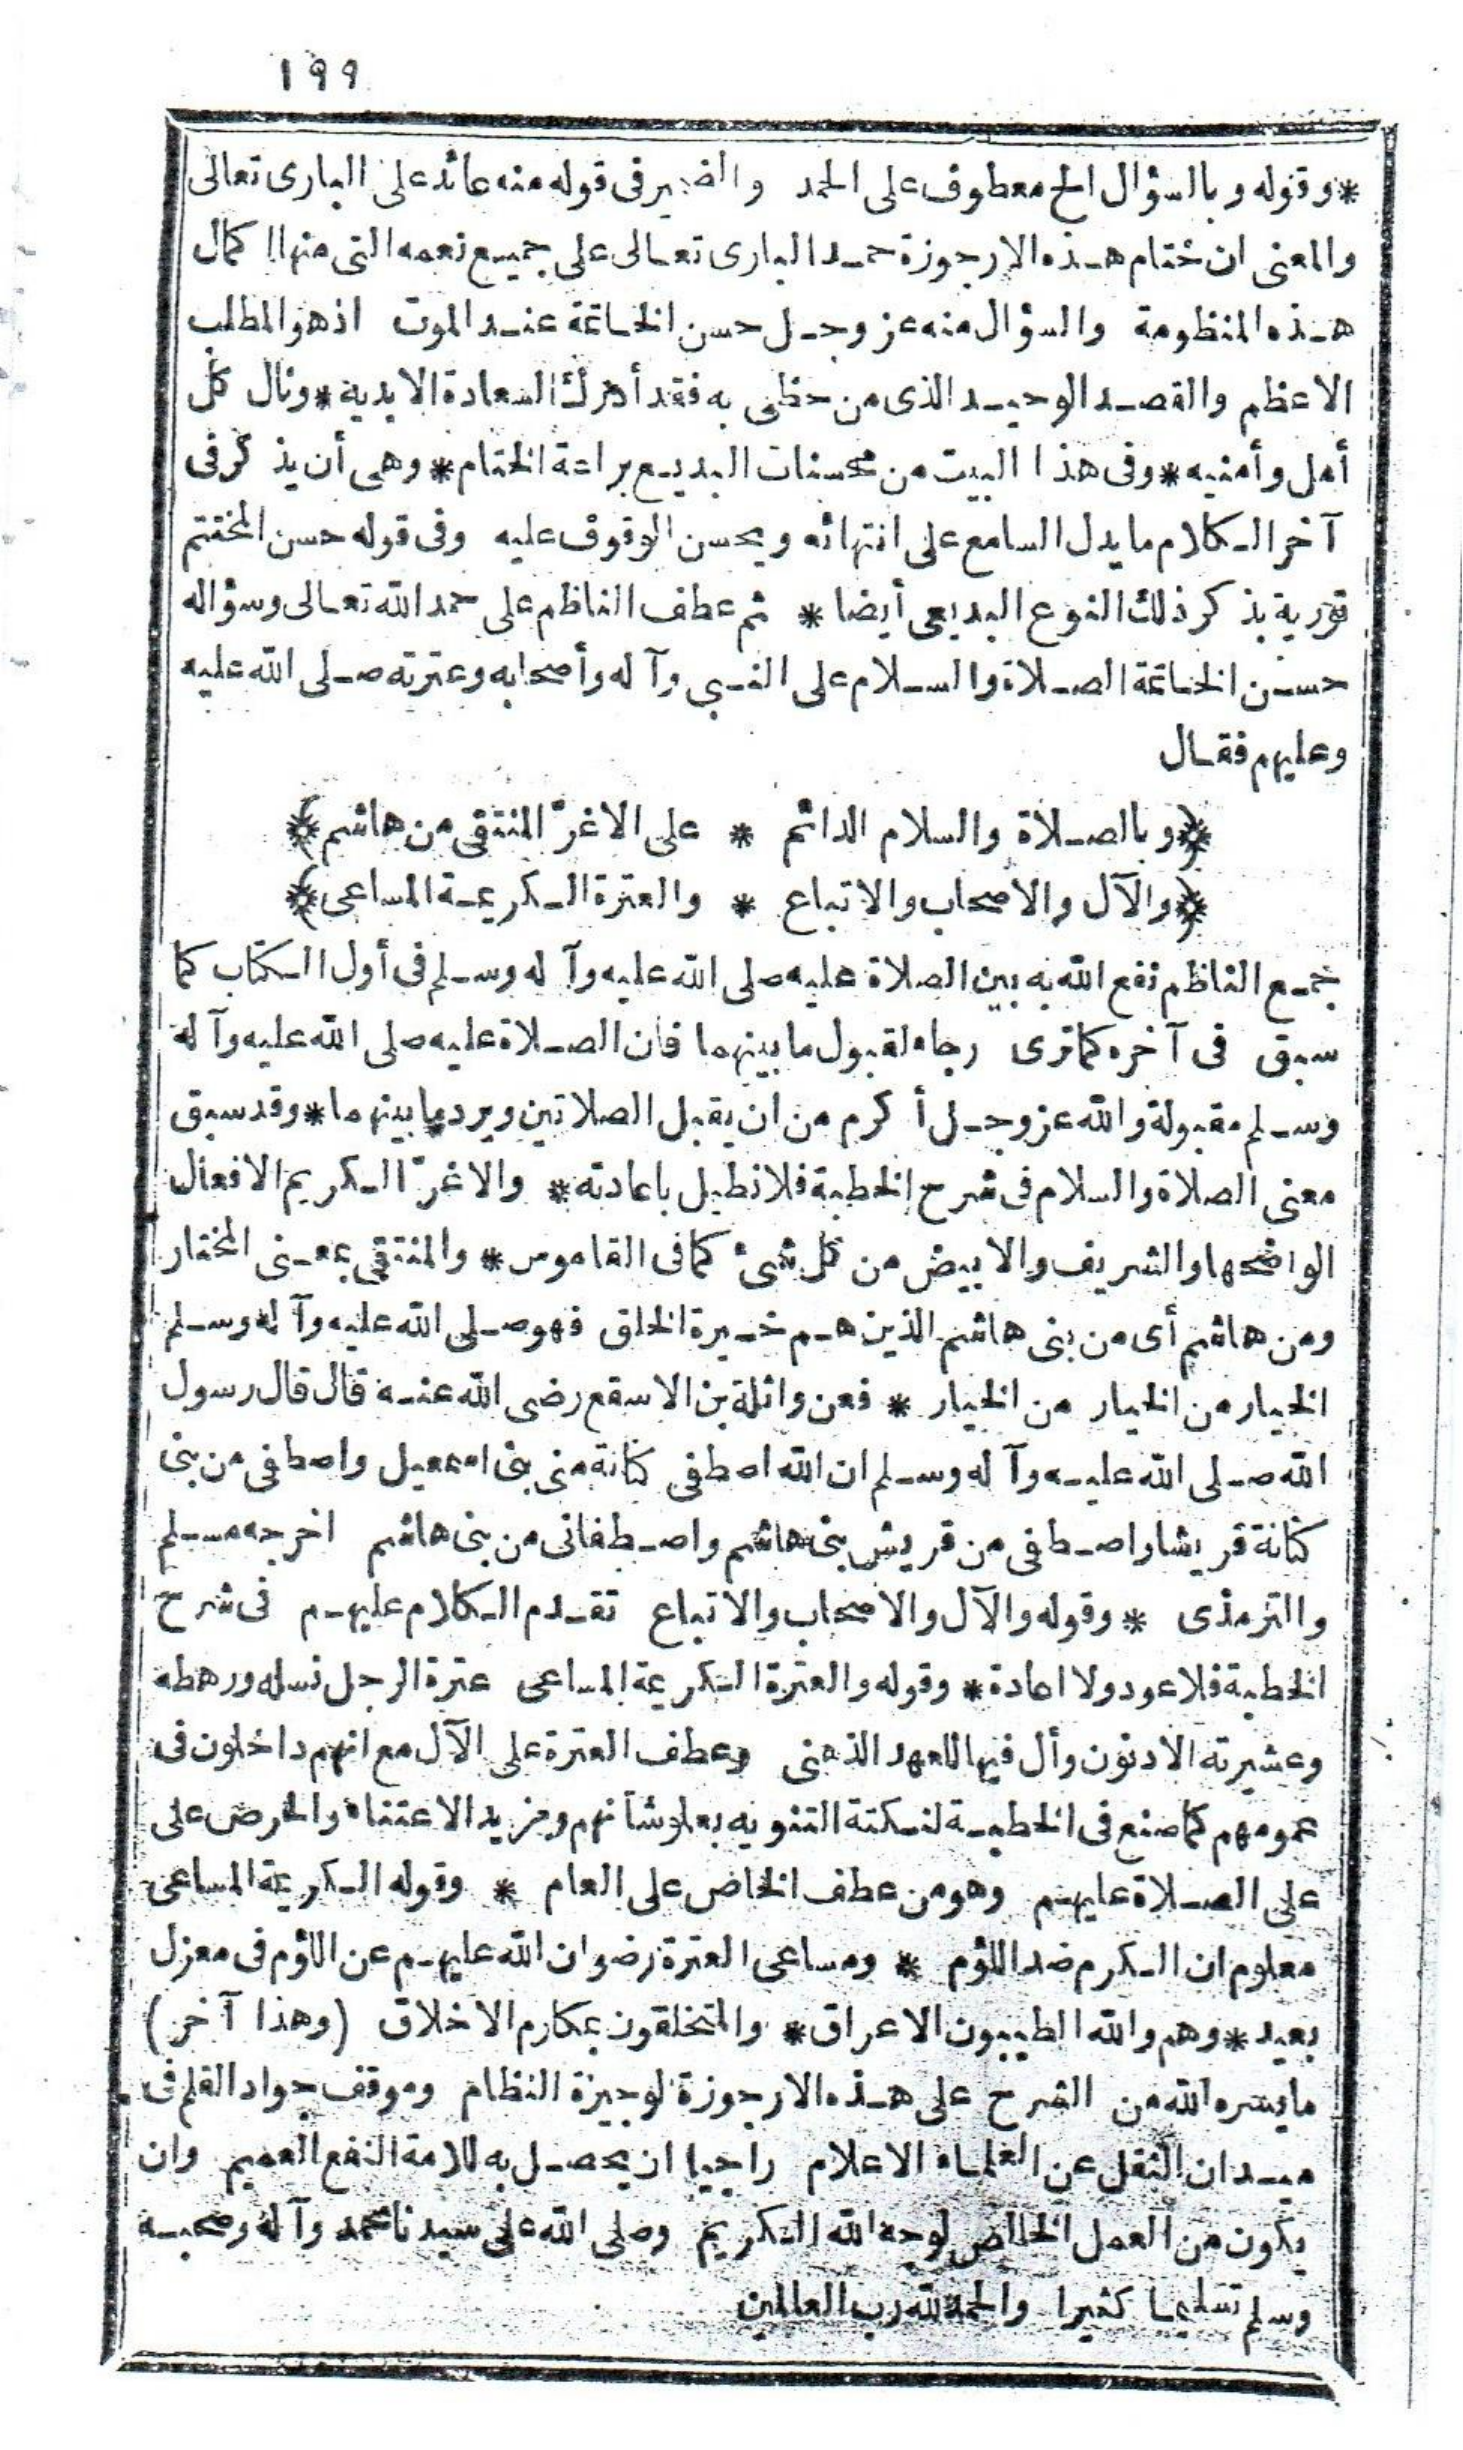 ١٩٩
*وقوله وبالسؤال الخ معطوف على الحمد والضمير فى قوله منه عائد على البارى تعالى
والمعنى ان ختام هذه الارجوزة حمد البارى تعالى على جميع نعمه التى منها اكمال
هذه المنظومة والسؤال منه عز وجل حسن الخاتمة عند الموت اذ هو المطلب
الاعظم والقصد الوحيد الذى من حظى به فقد أدرك السعادة الابدية * ونال كل
أمل وأمنيه * وفى هذا البيت من محسنات البديع براعة الختام * وهى أن يذكر فى
آخر الكلام ما يدل السامع على انتهائه ويحسن الوقوف عليه وفى قوله حسن المختتم
تورية بذكر ذلك النوع البديعى أيضا * ثم عطف الناظم على حمد الله تعالى وسؤاله
حسن الخاتمة الصلاة والسلام على النبى وآله وأصحابه وعترته صلى الله عليه
وعليهم فقال
﴿وبالصلاة والسلام الدائم * على الاغرّ المنتقى من هاشم﴾
﴿والآل والاصحاب والاتباع * والعترة الكريمة المساعى﴾
جمع الناظم نفع الله به بين الصلاة عليه صلى الله عليه وآله وسلم فى أول الكتاب كما
سبق فى آخره كما ترى رجاء لقبول ما بينهما فان الصلاة عليه صلى الله عليه وآله
وسلم مقبولة والله عز وجل أكرم من ان يقبل الصلاتين ويرد ما بينهما * وقد سبق
معنى الصلاة والسلام فى شرح الخطبة فلا نطيل باعادته * والاغرّ الكريم الافعال
الواضحها والشريف والابيض من كل شئ كما فى القاموس * والمنتقى بمعنى المختار
ومن هاشم أى من بنى هاشم الذين هم خيرة الخلق فهو صلى الله عليه وآله وسلم
الخيار من الخيار من الخيار * فعن واثلة بن الاسقع رضى الله عنه قال قال رسول
الله صلى الله عليه وآله وسلم ان الله اصطفى كنانة من بنى اسمعيل واصطفى من بنى
كنانة قريشا واصطفى من قريش بنى هاشم واصطفانى من بنى هاشم اخرجه مسلم
والترمذى * وقوله والآل والاصحاب والاتباع تقدم الكلام عليهم فى شرح
الخطبة فلا عود ولا اعادة * وقوله والعترة الكريمة المساعى عترة الرجل نسله ورهطه
وعشيرته الادنون وأل فيها للعهد الذهنى وعطف العترة على الآل مع انهم داخلون فى
عمومهم كما صنع فى الخطبة لنكتة التنويه بعلو شأنهم ومزيد الاعتناء والحرص على
على الصلاة عليهم وهو من عطف الخاص على العام * وقوله الكريمة المساعى
معلوم ان الكرم ضد اللؤم * ومساعى العترة رضوان الله عليهم عن اللؤم فى معزل
بعيد * وهم والله الطيبون الاعراق * والمتخلقون بمكارم الاخلاق (وهذا آخر)
ما يسره الله من الشرح على هذه الارجوزة لوجيزة النظام وموقف جواد القلم فى
ميدان النقل عن العلماء الاعلام راجيا ان يحصل به للامة النفع العميم وان
يكون من العمل الخالص لوجه الله الكريم وصلى الله على سيدنا محمد وآله وصحبه
وسلم تسليما كثيرا والحمد لله رب العالمين